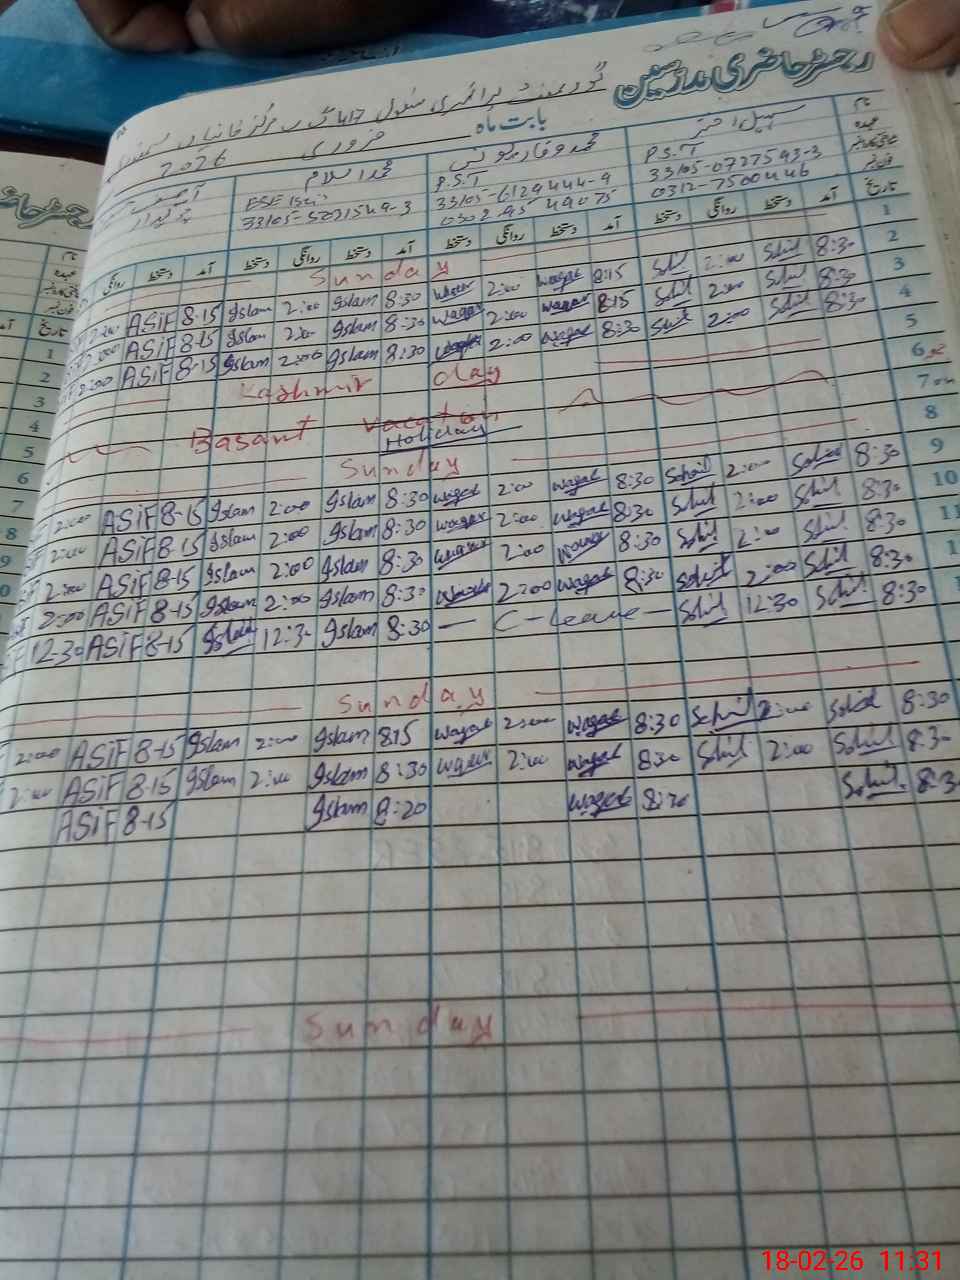 رجسٹر حاضری مدرسین
گورنمنٹ پرائمری سکول 417 گ ب مرکز خانپاں سمندری
بابت ماہ فروری 2026
نام سہیل اختر محمد وقار یونس محمد اسلام آصف
عہدہ P.S.T P.S.T ESE
33105-0727593-3 33105-6129444-9 33105-5021549-3
0312-7500446 0308-9549075
تاریخ آمد دستخط روانگی دستخط آمد دستخط روانگی دستخط آمد دستخط روانگی دستخط آمد دستخط روانگی
1 Sunday
2 8:30 Sohil 2:00 Sohil 8:15 Waqar 2:00 Waqar 8:30 Islam 2:00 Islam 8-15 ASIF 2:00
3 8:30 Sohil 2:00 Sohil 8:15 Waqar 2:00 Waqar 8:30 Islam 2:00 Islam 8-15 ASIF 2:00
4 8:30 Sohil 2:00 Sohil 8:30 Waqar 2:00 Waqar 8:30 Islam 2:00 Islam 8-15 ASIF 2:00
5 Kashmir day
6
7 Basant vacation
Holiday
8 Sunday
9 8:30 Sohil 2:00 Sohil 8:30 Waqar 2:00 Waqar 8:30 Islam 2:00 Islam 8-15 ASIF 2:00
10 8:30 Sohil 2:00 Sohil 8:30 Waqar 2:00 Waqar 8:30 Islam 2:00 Islam 8-15 ASIF 2:00
11 8:30 Sohil 2:00 Sohil 8:30 Waqar 2:00 Waqar 8:30 Islam 2:00 Islam 8-15 ASIF 2:00
8:30 Sohil 2:00 Sohil 8:30 Waqar 2:00 Waqar 8:30 Islam 2:00 Islam 8-15 ASIF 2:00
8:30 Sohil 12:30 Sohil C-leave 8:30 Islam 12:30 Islam 8-15 ASIF 12-30
Sunday
8:30 Sohil 2:00 Sohil 8:30 Waqar 2:00 Waqar 8:15 Islam 2:00 Islam 8-15 ASIF 2:00
8:30 Sohil 2:00 Sohil 8:30 Waqar 2:00 Waqar 8:30 Islam 2:00 Islam 8-15 ASIF 2:00
8:30 Sohil 8:30 Waqar 8:20 Islam 8-15 ASIF
Sunday
18-02-26 11:31